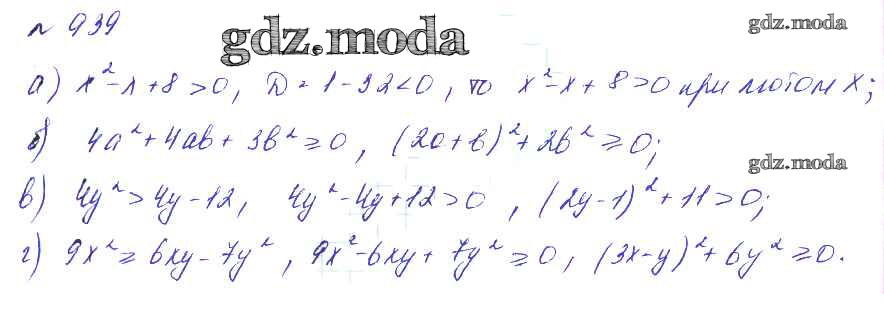 № 939
gdz.moda
gdz.moda
а) x²-x+8>0, D=1-32<0, то x²-x+8>0 при любом x;
б) 4a²+4ab+3b²≥0, (2a+b)²+2b²≥0;
gdz.moda
в) 4y²>4y-12, 4y²-4y+12>0, (2y-1)²+11>0;
г) 9x²≥6xy-7y², 9x²-6xy+7y²≥0, (3x-y)²+6y²≥0.